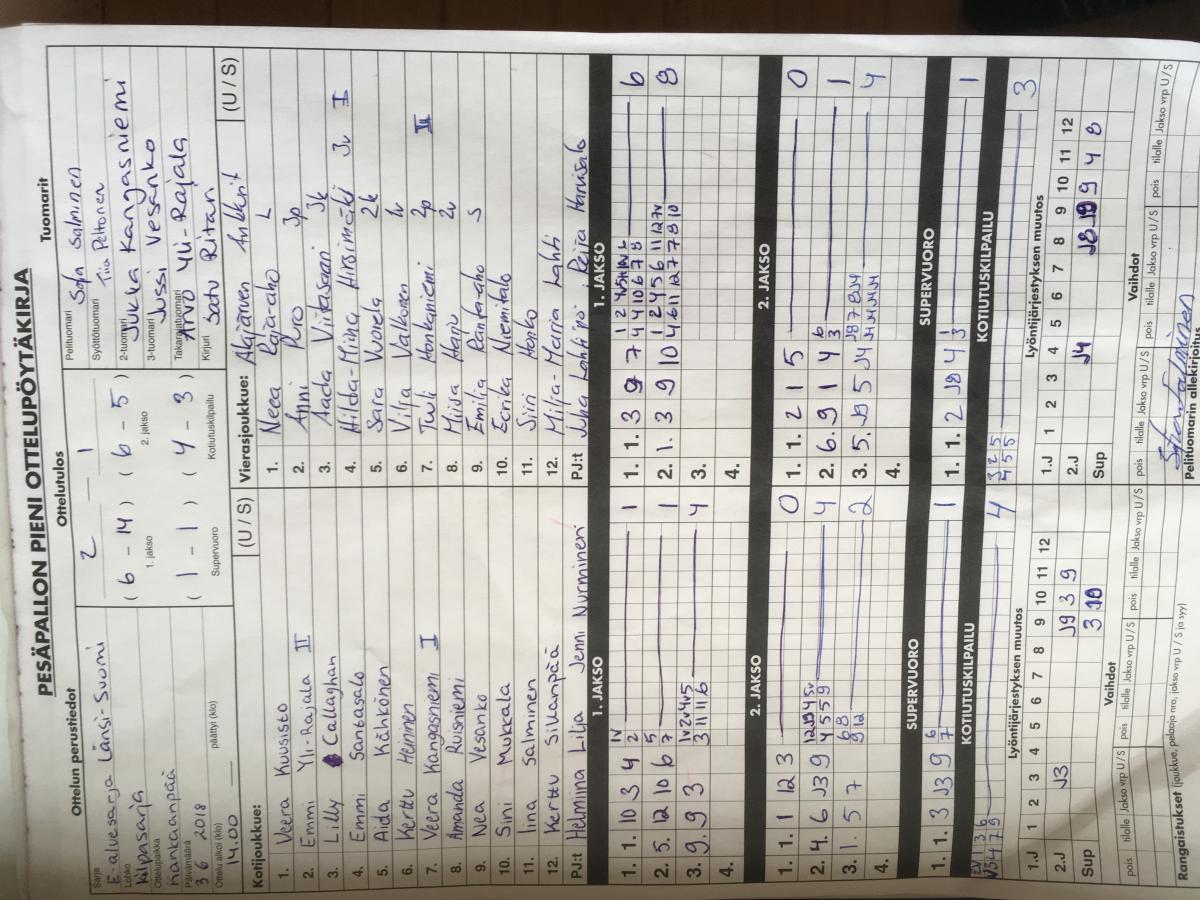 PESÄPALLON PIENI OTTELUPÖYTÄKIRJA
Ottelun perustiedot
Sarja
E-aluesarja Länsi-Suomi
Lohko
Kilpasarja
Ottelupaikka
Kankaanpää
Päivämäärä
3 6 2018
Ottelu alkoi (klo) päättyi (klo)
14.00
Ottelutulos
2 1
( 6 - 14 ) ( 6 - 5 )
1. jakso 2. jakso
( 1 - 1 ) ( 4 - 3 )
Supervuoro Kotiutuskilpailu
Tuomarit
Pelituomari Sofia Salminen
Syöttötuomari Tiia Peltonen
2-tuomari Jukka Kangasniemi
3-tuomari Jussi Vesanko
Takarajatuomari Arvo Yli-Rajala
Kirjuri Satu Ritari
Kotijoukkue: (U / S)
1. Veera Kuusisto
2. Emmi Yli-Rajala II
3. Lilly Callaghan
4. Emmi Santasalo
5. Aida Kähkönen
6. Kerttu Heininen
7. Veera Kangasniemi I
8. Amanda Ruisniemi
9. Nea Vesanko
10. Sini Mukkala
11. Iina Salminen
12. Kerttu Silvanpää
PJ:t Helmiina Lilja Jenni Nurminen
Vierasjoukkue: Alajärven Ankkurit (U / S)
1. Neea Raja-aho L
2. Anni Puro 3p
3. Aada Viitasaari 3k
4. Hilda-Miina Hirsimäki 3v I
5. Sara Vuorela 2k
6. Vilja Valkonen 1v
7. Tuuli Honkaniemi 2p II
8. Miisa Harju 2v
9. Emilia Ranta-aho S
10. Eerika Niemitalo
11. Siiri Henko
12. Milja-Merja Lahti
PJ:t Juha Lahti
1. JAKSO
1. 1. 10 3 4 1
2. 5. 12 10 6 1
3. 9. 9 3 4
4.
1. JAKSO
1. 1. 3 9 7 6
2. 1. 3 9 10 8
3.
4.
2. JAKSO
1. 1. 1 12 3 0
2. 4. 6 J3 9 4
3. 1. 5 7 2
4.
2. JAKSO
1. 1. 2 1 5 0
2. 6. 9 1 4 1
3. 5. J9 5 J4 4
4.
SUPERVUORO
1. 1. 3 J3 9 1
SUPERVUORO
1. 1. 2 J8 4 1
KOTIUTUSKILPAILU
4
KOTIUTUSKILPAILU
3
Lyöntijärjestyksen muutos
1.J 1 2 3 4 5 6 7 8 9 10 11 12
2.J J3 J9 3 9
Sup 3
Lyöntijärjestyksen muutos
1.J 1 2 3 4 5 6 7 8 9 10 11 12
2.J J4
Sup 9 4 8
Vaihdot
pois tilalle Jakso vrp U / S pois tilalle Jakso vrp U / S pois tilalle Jakso vrp U / S
Vaihdot
pois tilalle Jakso vrp U / S pois tilalle Jakso vrp U / S pois tilalle Jakso vrp U / S
Rangaistukset (joukkue, pelaaja nro, jakso vrp, U / S ja syy)
Pelituomarin allekirjoitus